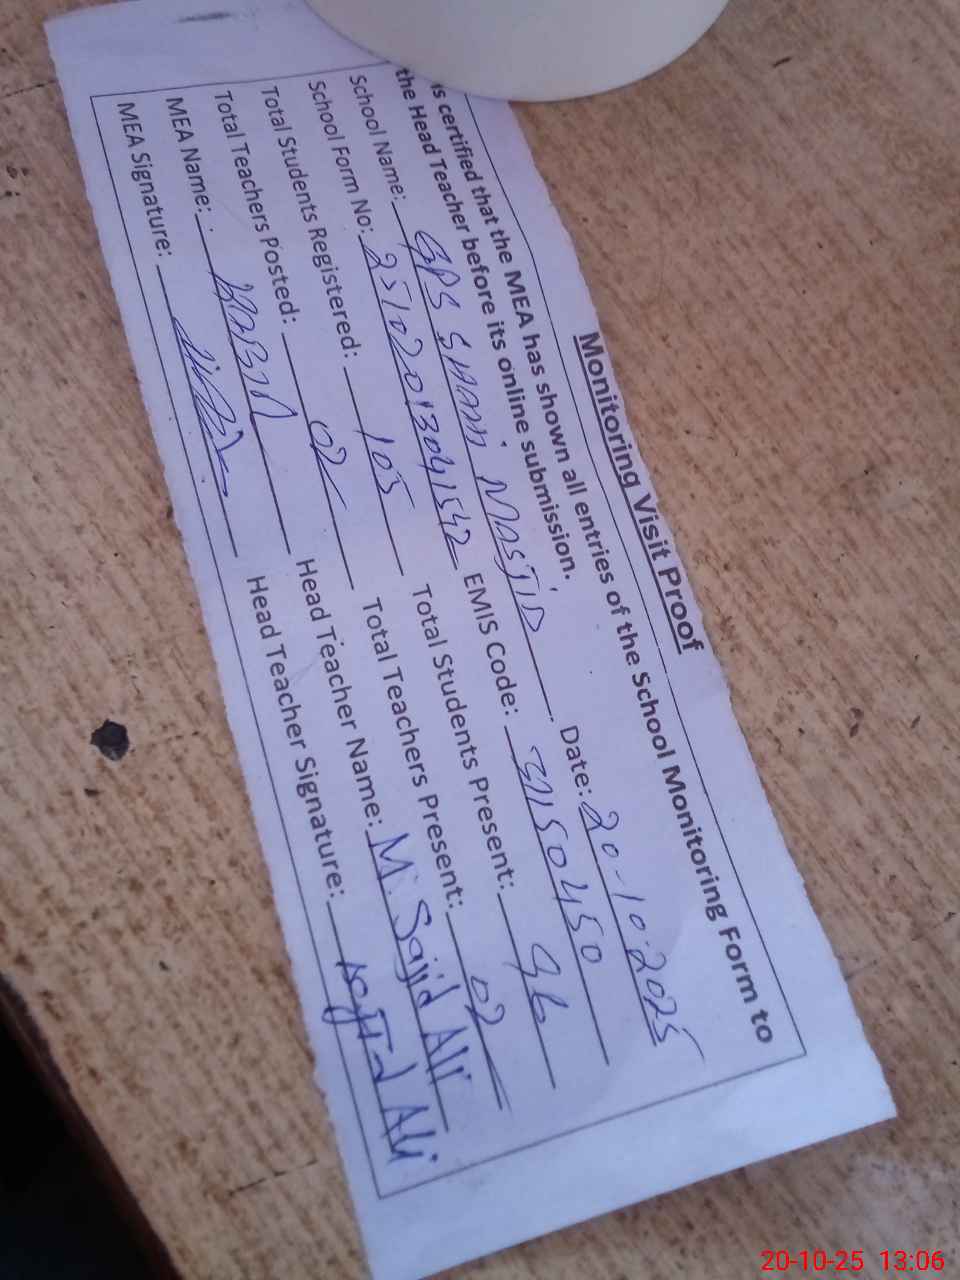 Monitoring Visit Proof
is certified that the MEA has shown all entries of the School Monitoring Form to
the Head Teacher before its online submission.
School Name: GPS SHAHI MASJID Date: 20-10-2025
School Form No: 2510220130041542 EMIS Code: 31150450
Total Students Registered: 105 Total Students Present: 96
Total Teachers Posted: 02 Total Teachers Present: 02
MEA Name: Head Teacher Name: M. Sajid Ali
MEA Signature: Head Teacher Signature: Sajid Ali
20-10-25 13:06